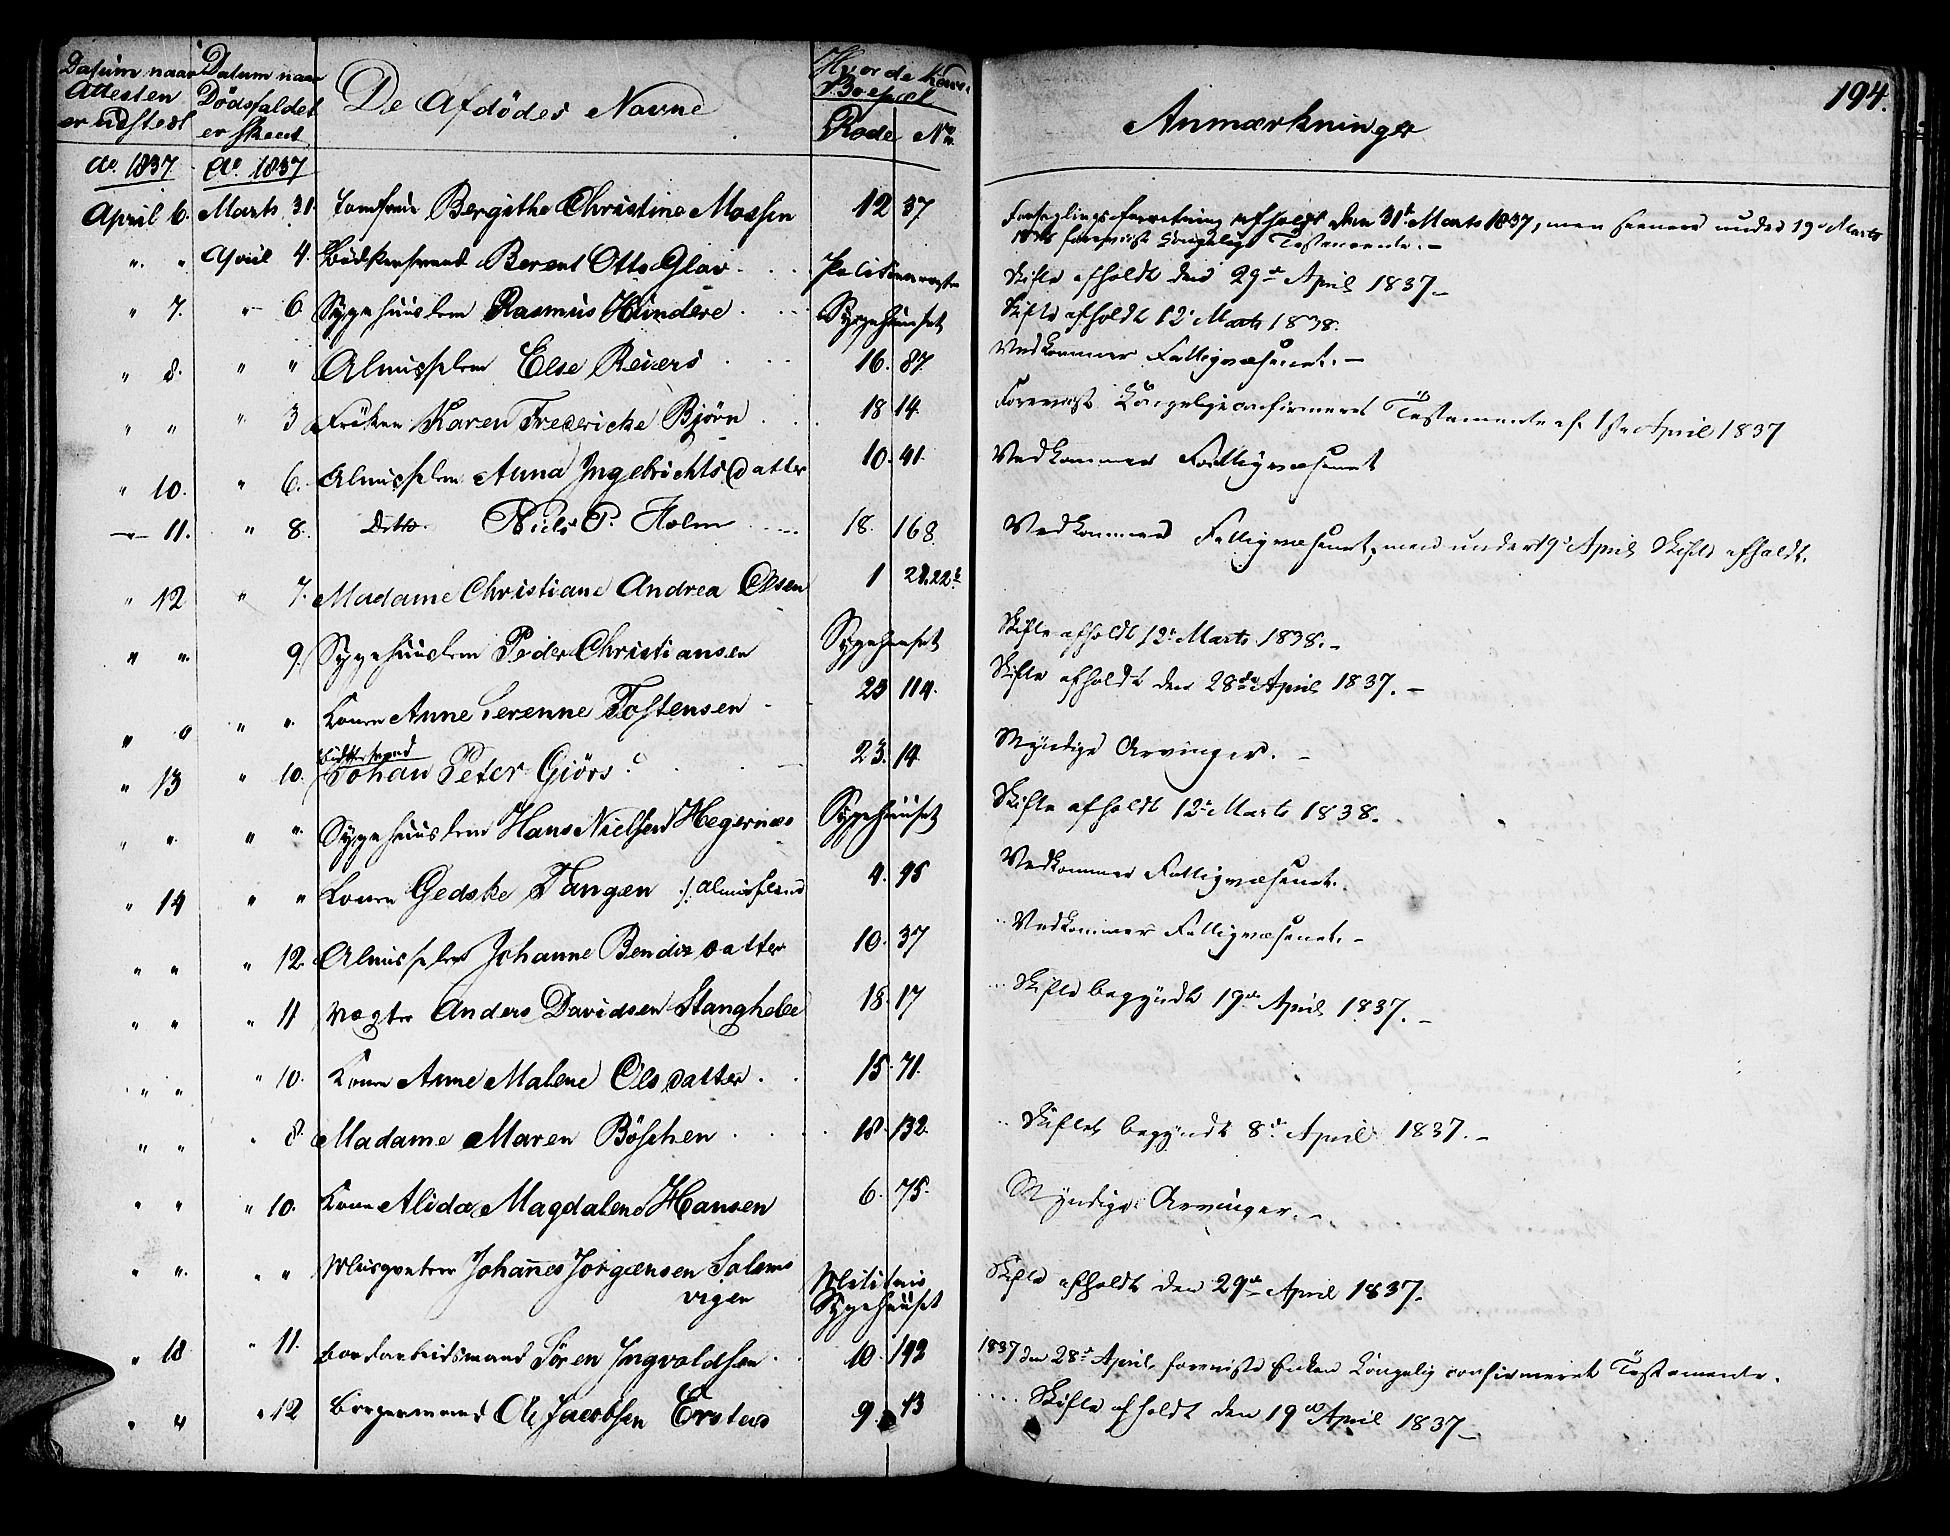 Datum naar Attesten er udstedt
Datum naar Dödsfaldet er skeed
De Afdödes Navne
Hvor de have Boepæl
Rode No.
Anmærkninger
194.
Ao. 1837 Ao. 1837
April 6. Marts 31. Jomfrue Bergithe Christine Mossen 12 37 Forseglings forretning afholdt den 31te Marts 1837, men senere under 19de Marts
forevist Kongeligt Testamente. -
" " April 4. Bödkersvend Berent Otto Glav Skifte afholdt den 29de April 1837 -
" 7. " 6 Sygehuuslem Rasmus Hindere Sygehuuset Skifte afholdt 12te Marts 1838.
" 8. " " Almisselem Else Reiers 16. 87. Vedkommer Fattigvæsenet. -
" " " 3 Fröken Karen Fredericke Björn 18 14. Forevist Kongelig confirmeret Testamente af 1ste April 1837
" 10. " 6. Almisselem Anna Ingebrichtsdatter 10. 41. Vedkommer Fattigvæsenet
" 11. " 8. Ditto Niels P. Holm 18. 168. Vedkommer Fattigvæsenet, men under 19de April Skifte afholdt.
" 12 " 7. Madame Christiane Andrea Olsen 1
" " 9. Sygehuuslem Peder Christiansen Sygehuuset Skifte afholdt 12te Marts 1838. -
" " " " Konen Anne Serenne Tostensen 23 114. Skifte afholdt den 28de April 1837. -
" 13 " 10. Bödkersvend Johan Peter Giörs 23. 14. Myndige Arvinger. -
" " " " Sygehuuslem Hans Nielsen Hegernæs Sygehuuset Skifte afholdt 12te Marts 1838.
" 14 " " Konen Gedske Tangen /: Almisselem 4. 95 Vedkommer Fattigvæsenet.
" " " 12. Almisselem Johanne Bendixdatter 10. 37 Vedkommer Fattigvæsenet. -
" " " 11 Vægter Anders Davidsen Stanghelle 18. 17 Skifte begyndt 19de April 1837. -
" " " 10. Konen Anne Malene Olsdatter 15. 71.
" " " 8. Madame Maren Böschen 18. 132. Skiftet begyndt 8de April 1837. -
" " " 10. Konen Alida Magdalene Hansen 6. 75. Myndige Arvinger. -
" " " " Johanes Jörgensen Solems
vigen Militair Sygehuuset Skifte afholdt den 29de April 1837.
" 18 " 11. Sören Ingvoldsen 10. 192 1837 den 28de April foreviste Enken Kongelig confirmeret Testamente.
" " " 12 Borgermand Ole Jacobsen Erstad 9. 43 Skifte afholdt den 19de April 1837 -